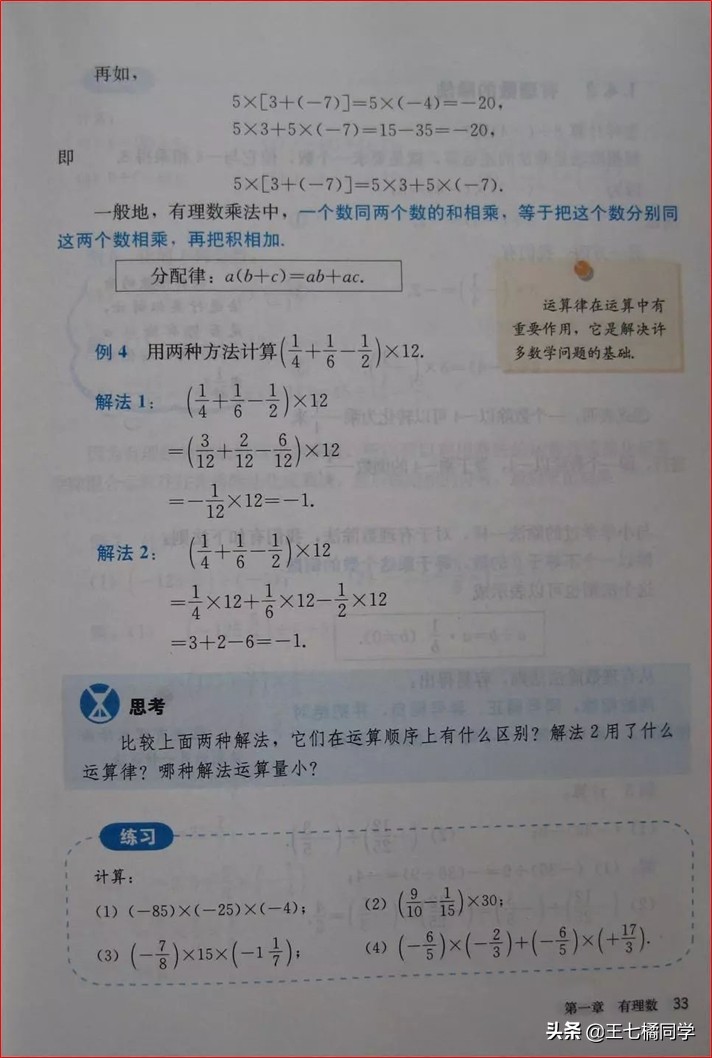 再如，
5×[3+(−7)]=5×(−4)=−20，
5×3+5×(−7)=15−35=−20，
即
5×[3+(−7)]=5×3+5×(−7).
一般地，有理数乘法中，一个数同两个数的和相乘，等于把这个数分别同
这两个数相乘，再把积相加.
分配律：a(b+c)=ab+ac.
运算律在运算中有
重要作用，它是解决许
多数学问题的基础.
例4 用两种方法计算(1/4+1/6−1/2)×12.
解法1： (1/4+1/6−1/2)×12
=(3/12+2/12−6/12)×12
=−1/12×12=−1.
解法2： (1/4+1/6−1/2)×12
=1/4×12+1/6×12−1/2×12
=3+2−6=−1.
思考
比较上面两种解法，它们在运算顺序上有什么区别？解法2用了什么
运算律？哪种解法运算量小？
练习
计算：
(1) (−85)×(−25)×(−4)； (2) (9/10−1/15)×30；
(3) (−7/8)×15×(−1 1/7)； (4) (−6/5)×(−2/3)+(−6/5)×(+17/3).
第一章 有理数 33
头条 @王七橘同学